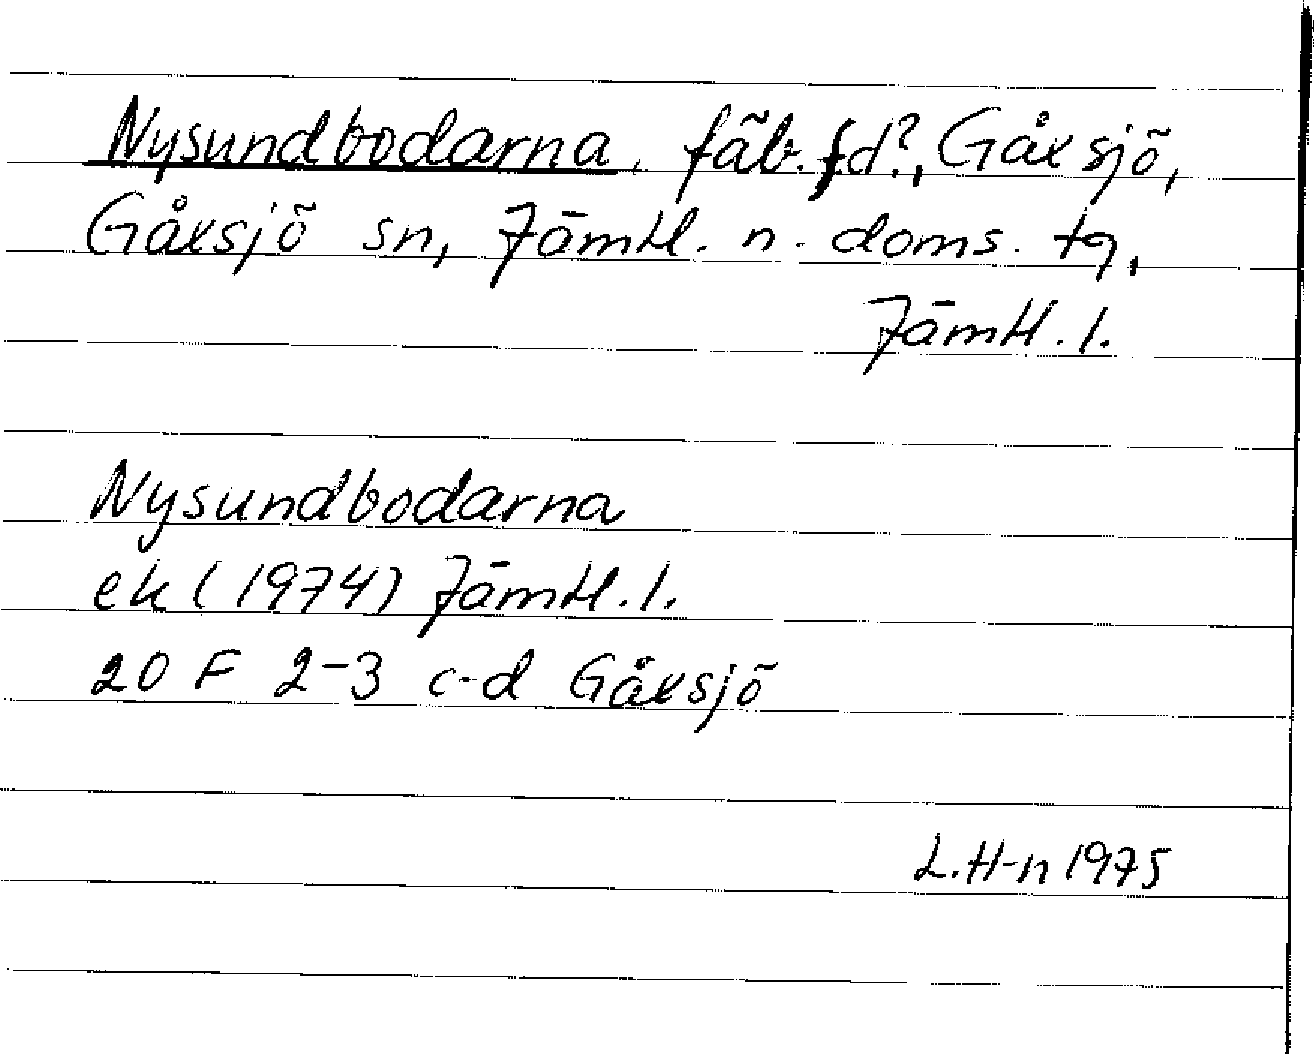 Nysundbodarna, fäb. fd?, Gåxsjö,
Gåxsjö sn, Jämtl. n. doms. tg,
Jämtl. l.
Nysundbodarna
ek (1974) Jämtl. l.
20 F 2-3 c-d Gåxsjö
L.H-n 1975